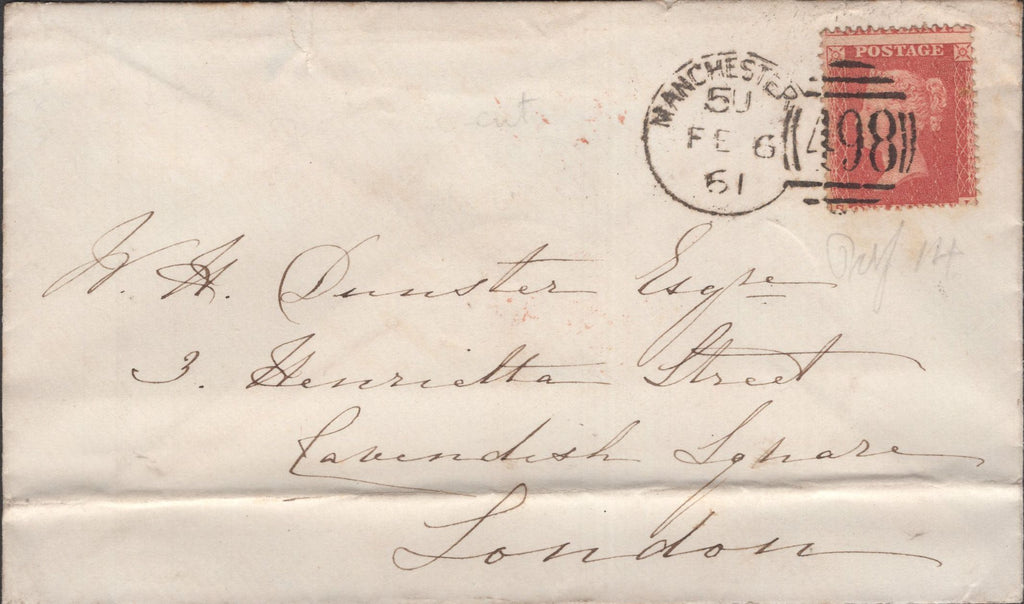 POSTAGE
MANCHESTER
5U
FE 6
61
498
cut
Perf 14
W. H. Dunster Esqre
3. Henrietta Street
Cavendish Square
London